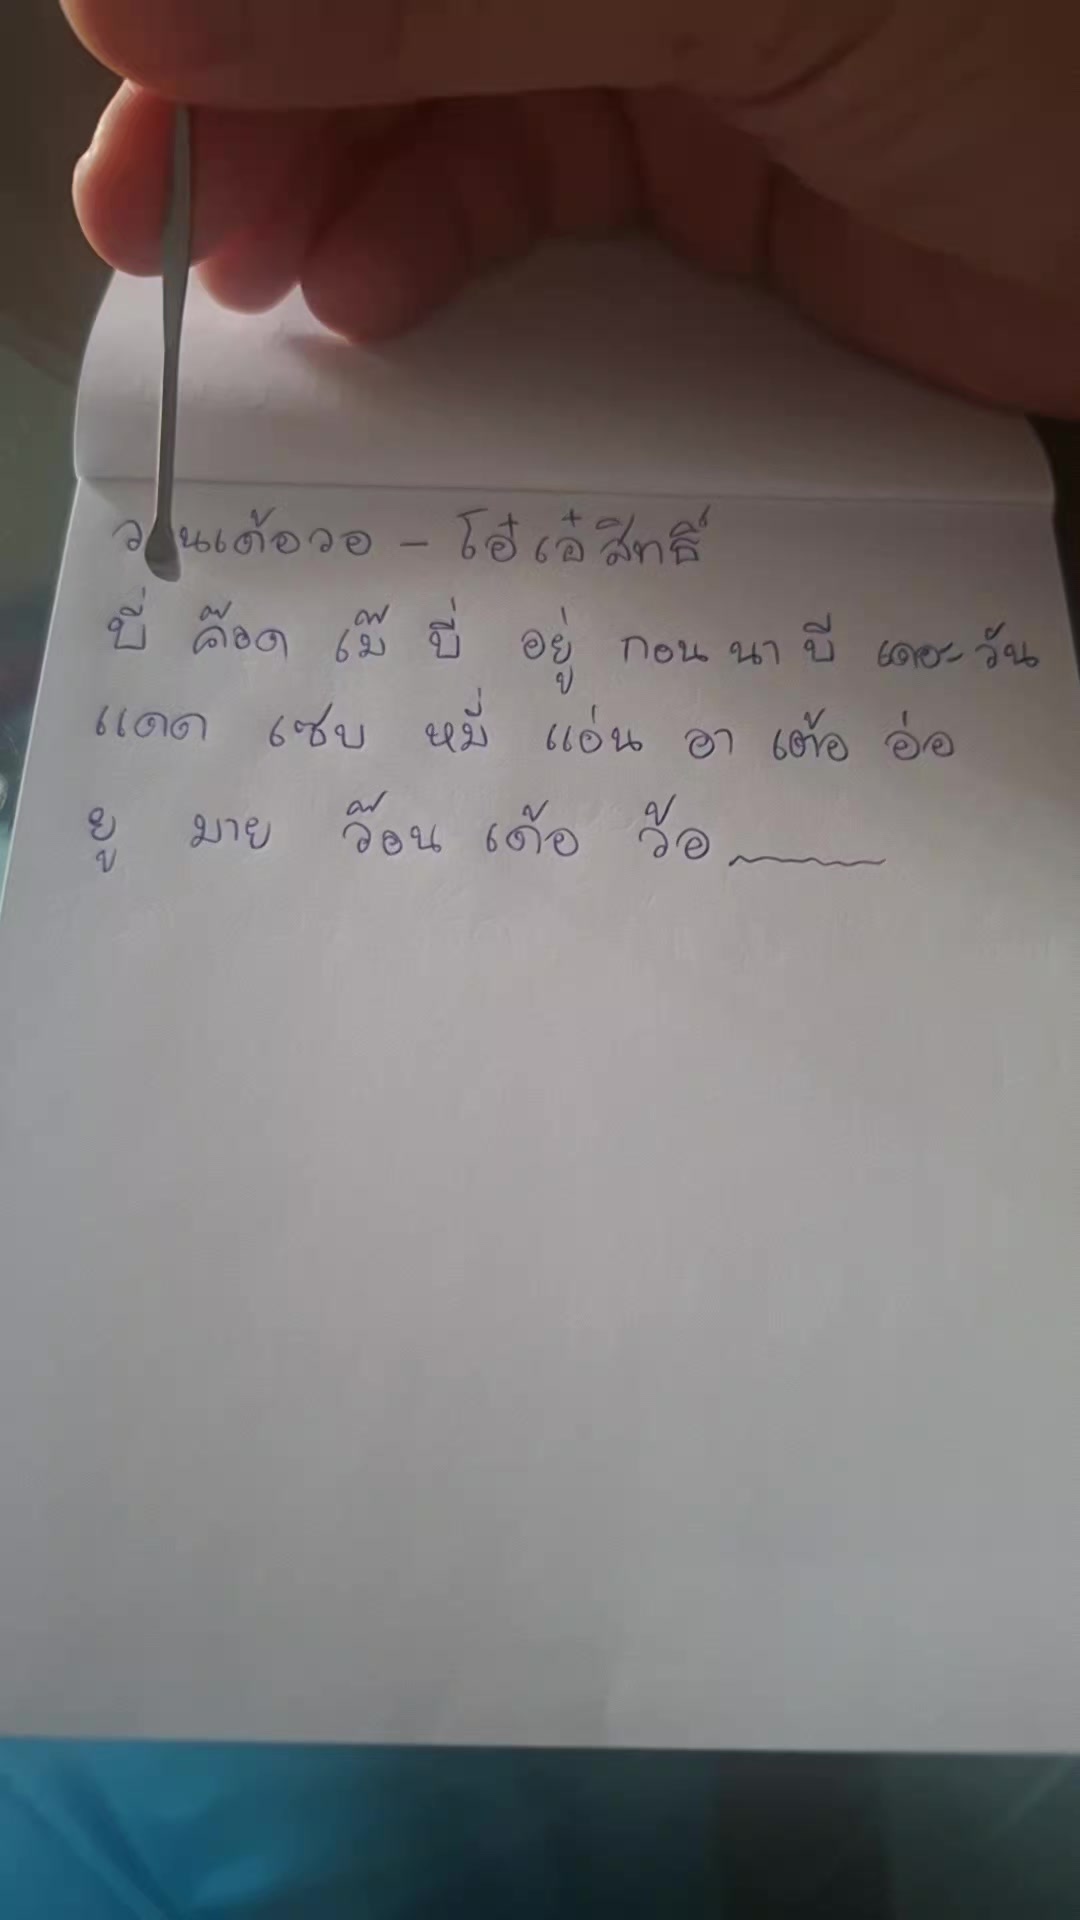 โอ๋เอ๋สิทธิ์
บี่ ค๊อด เม๊ บี่ อยู่ กอน นา บี เดอะ วัน
แดด เซบ หมี่ แอ่น อา เต้อ อ่อ
ยู มาย ว๊อน เด้อ ว้อ